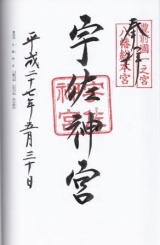 奉拝
豊前國一之宮
八幡総本宮
宇佐神宮
宇佐
神宮
平成二十七年五月三十日